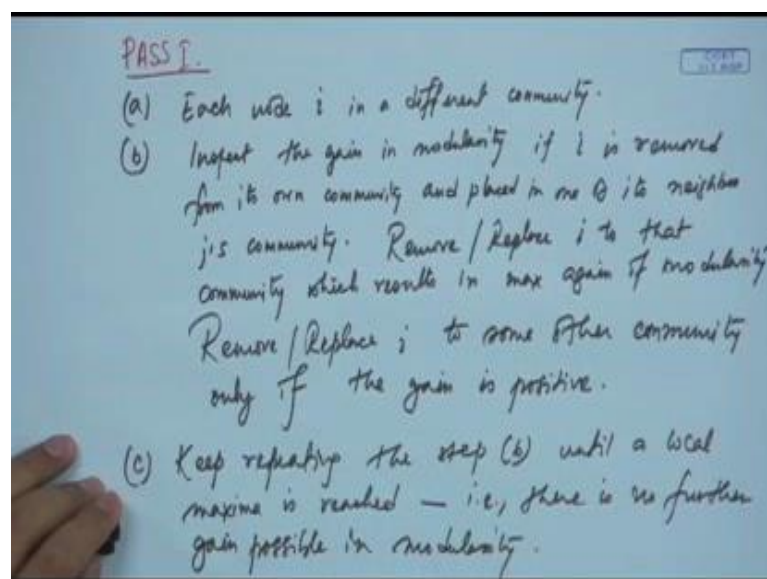 PASS I.
(a) Each node i in a different community.
(b) Inspect the gain in modularity if i is removed
from its own community and placed in one of its neighbor
j's community. Remove/Replace i to that
community which results in max again of modularity
Remove/Replace i to some other community
only if the gain is positive.
(c) Keep repeating the step (b) until a local
maxima is reached — i.e., there is no further
gain possible in modularity.